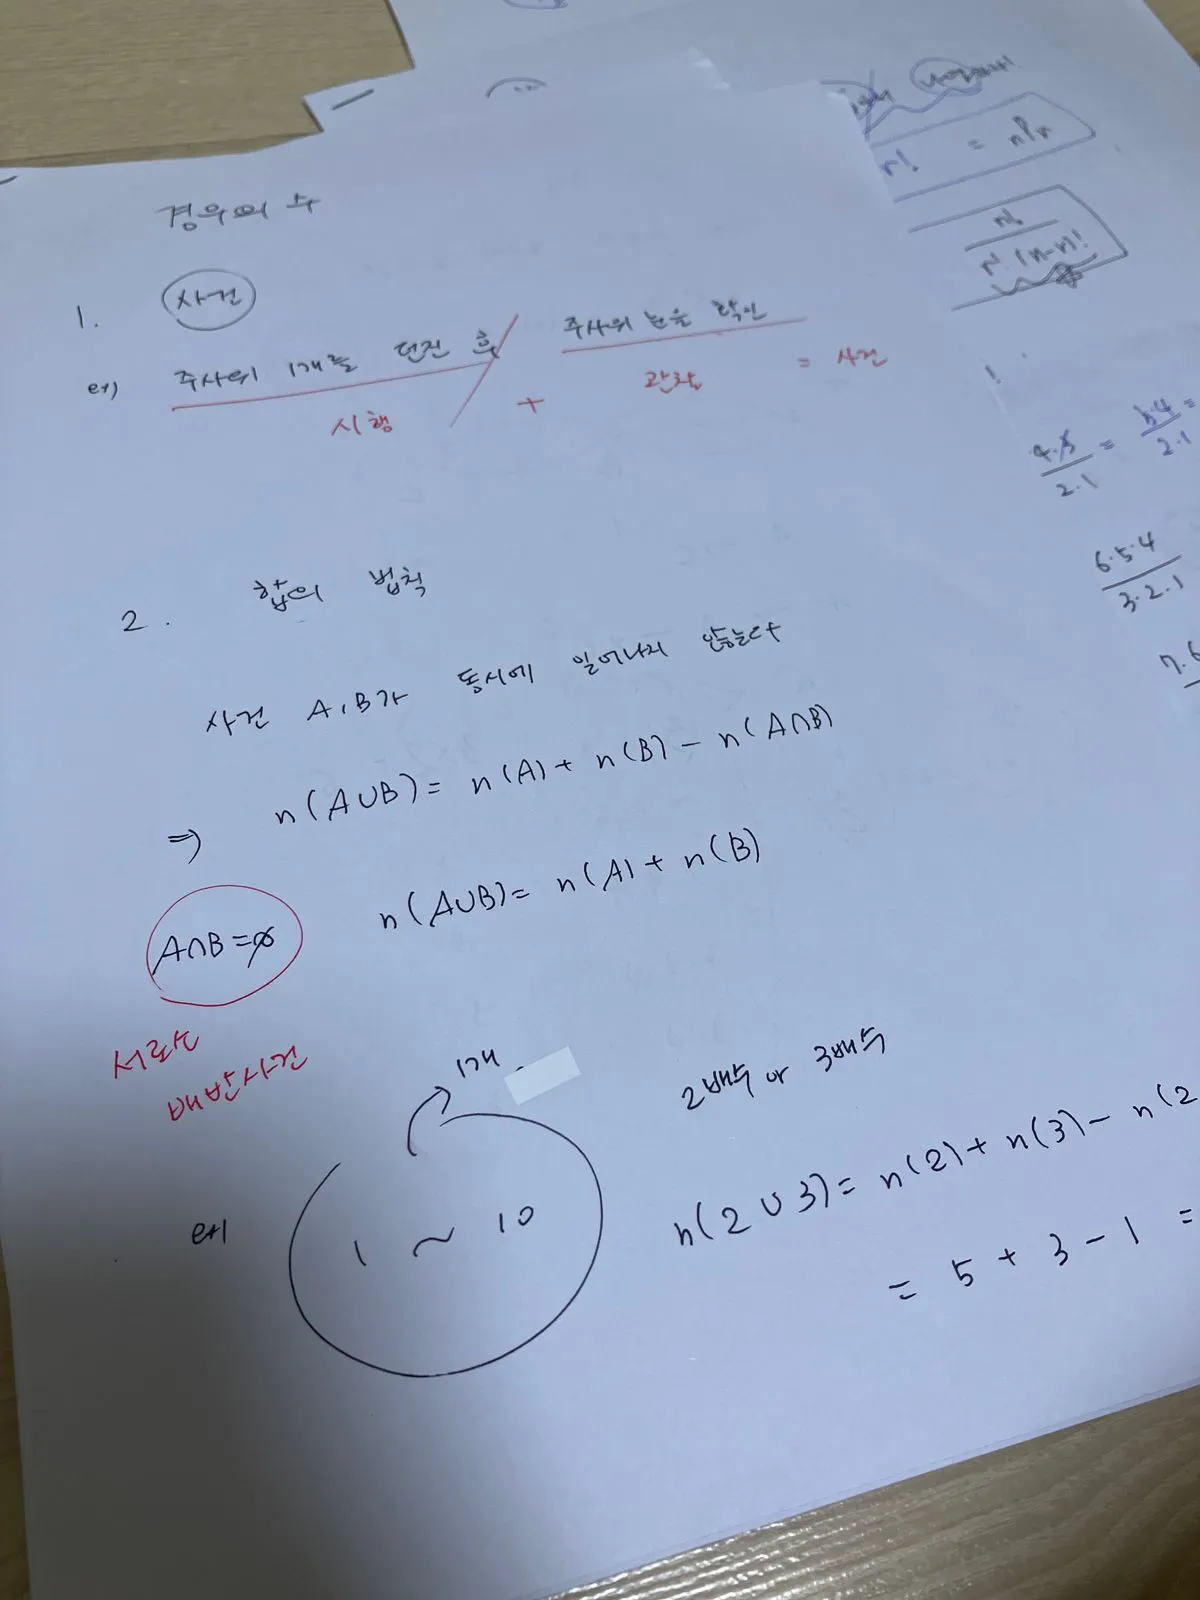 경우의 수
1. 사건
예) 주사위 1개를 던진 후 / 주사위 눈을 확인
시행 + 관찰 = 사건
2. 합의 법칙
사건 A, B가 동시에 일어나지 않는다
⇒ n(A∪B) = n(A) + n(B) - n(A∩B)
A∩B=∅ n(A∪B) = n(A) + n(B)
서로소
배반사건
1개
2배수 or 3배수
예) 1 ~ 10
n(2∪3) = n(2) + n(3) - n(2
= 5 + 3 - 1 =
r! = nPr
n!
r!(n-r)!
!
2·1
2·1
6·5·4
3·2·1
7·6